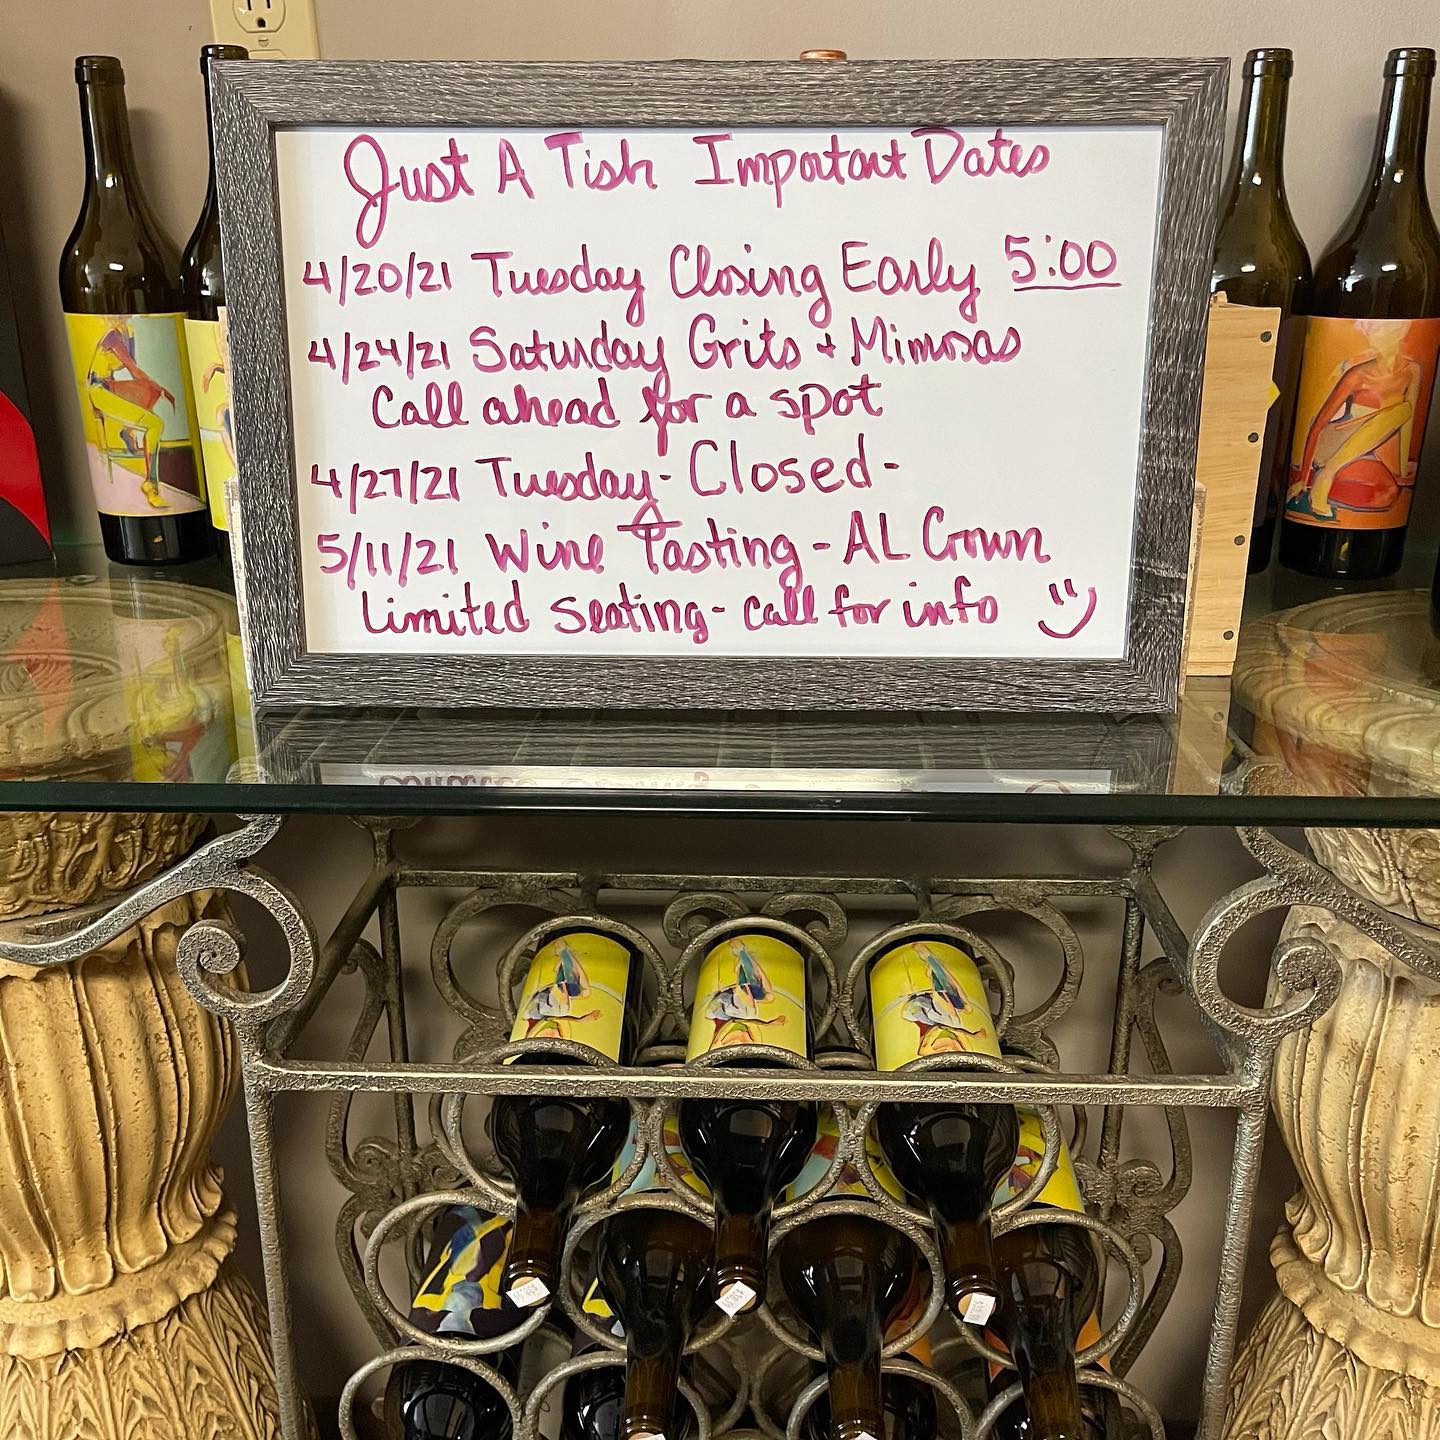 Just A Tish Important Dates
4/20/21 Tuesday Closing Early 5:00
4/24/21 Saturday Grits + Mimosas
Call ahead for a spot
4/27/21 Tuesday - Closed -
5/11/21 Wine Tasting - AL Crown
Limited Seating - call for info